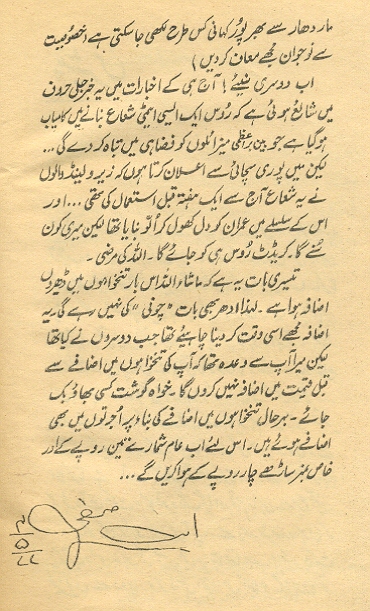 مار دھار سے بھر پور کہانی کس طرح لکھی جا سکتی ہے (خصوصیت
سے نوجوان مجھے معاف کر دیں)
اب دوسری سنیے! آج ہی کے اخبارات میں یہ خبر جلی حروف
میں شائع ہوئی ہے کہ روس ایک ایسی ایٹمی شعاع بنانے میں کامیاب
ہو گیا ہے جو بین براعظمی میزائلوں کو فضا ہی میں تباہ کر دے گی ...
لیکن میں پوری سچائی سے اعلان کرتا ہوں کہ زیرو لینڈ والوں
نے یہ شعاع آج سے ایک ہفتہ قبل استعمال کی تھی ... اور
اس کے سلسلے میں عمران کو دل کھول کر اُلّو بنایا تھا لیکن میری کون
سُنے گا۔ کریڈٹ روس ہی کو جائے گا۔ اللہ کی مرضی۔
تیسری بات یہ ہے کہ ماشاء اللہ اس بار تنخواہوں میں ڈھیروں
اضافہ ہوا ہے۔ لہٰذا ادھر بھی بات "چونی" کی نہیں رہے گی۔ یہ
اضافہ مجھے اسی وقت کر دینا چاہیئے تھا جب دوسروں نے کیا تھا
لیکن میرا آپ سے وعدہ تھا کہ آپ کی تنخواہوں میں اضافے سے
قبل قیمت میں اضافہ نہیں کروں گا۔ خواہ گوشت کسی بھاؤ بِک
جائے۔ بہر حال تنخواہوں میں اضافے کی بناء پر اُجرتوں میں بھی
اضافے ہوئے ہیں۔ اس لئے اب عام شمارے تین روپے کے اور
خاص نمبر ساڑھے چار روپے کے ہوا کریں گے ...
ابن صفی